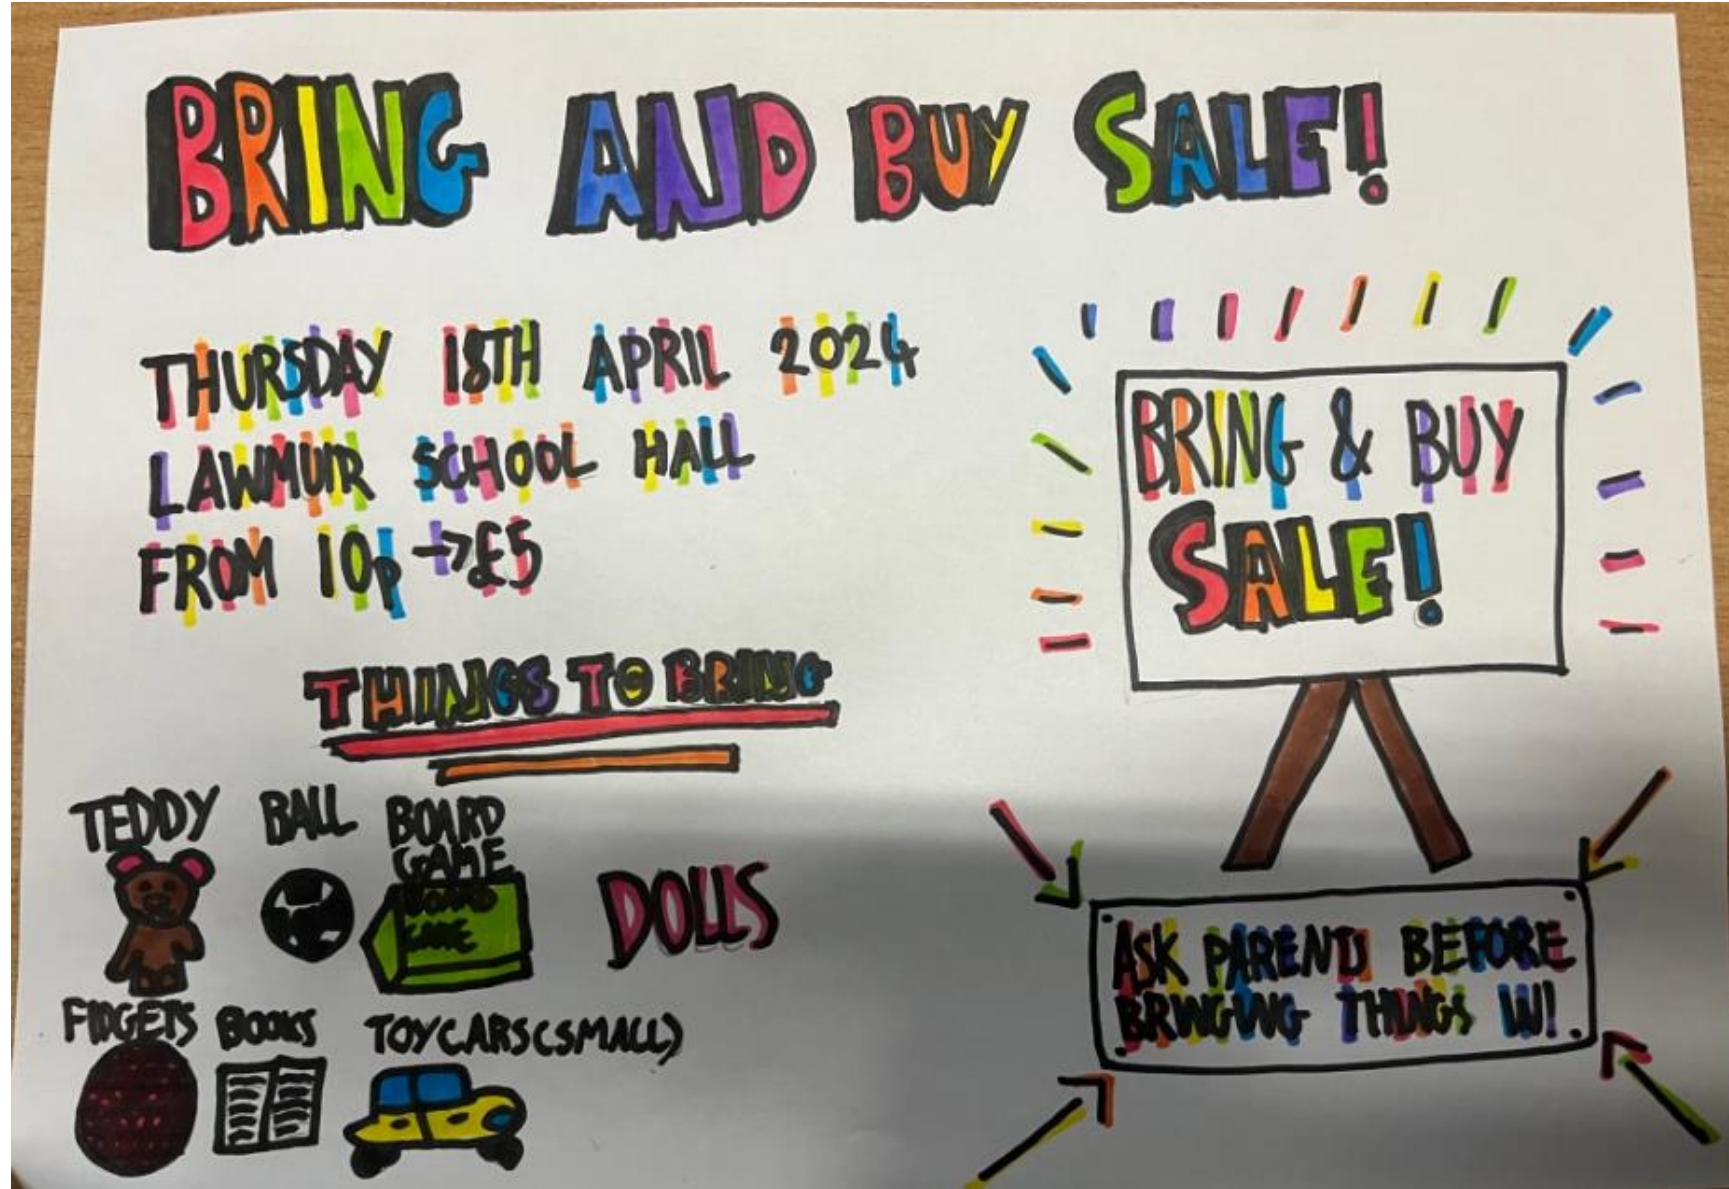 BRING AND BUY SALE!
THURSDAY 18TH APRIL 2024
LAWMUIR SCHOOL HALL
FROM 10p →£5
BRING & BUY
SALE!
THINGS TO BRING
TEDDY
BALL
BOARD
GAME
BOARD
GAME
DOLLS
FIDGETS
BOOKS
TOY CARS (SMALL)
ASK PARENTS BEFORE
BRINGING THINGS IN!